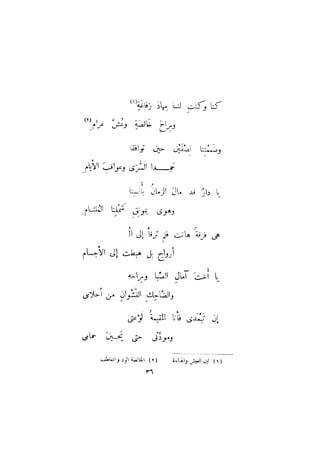 كنا وكنت لنا مهاد رفاغة(١)
ومراح خالصة وعش غرام(٢)
وضممتنا إلفين حين توافقا
حمدا السرى وعواقب الأيام
يا دار قد مال الزمان بأنسنا
وهوى بمونق شملنا الملتام
هى فرقة هانت فلم ترقأ إلى ال
أرواح بل هبطت إلى الأجسام
يا أخت آمال الصبا ومراحه
والضاحك النشوان من أحلامى
إن تبعدى فأنا المقيمة لوعتى
ومودتى حتى يحين حمامى
(١) لين العيش والهناءة (٢) الخالصة الود والتعاطف
٣٦